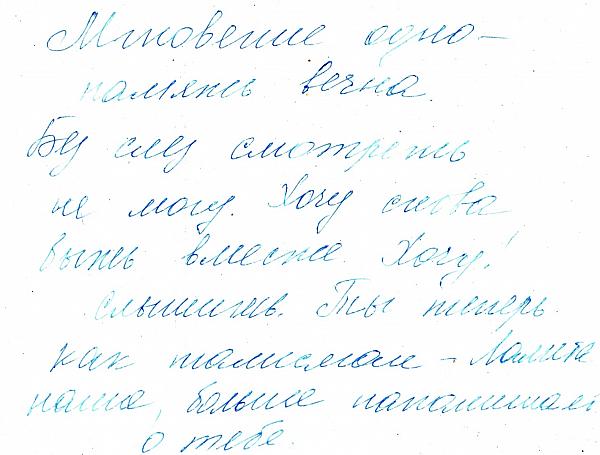 Мгновение одно -
память вечна.
Без слез смотреть
не могу. Хочу снова
быть вместе. Хочу!
слышишь. Ты теперь
как талисман -
наша, больше напоминает
о тебе.